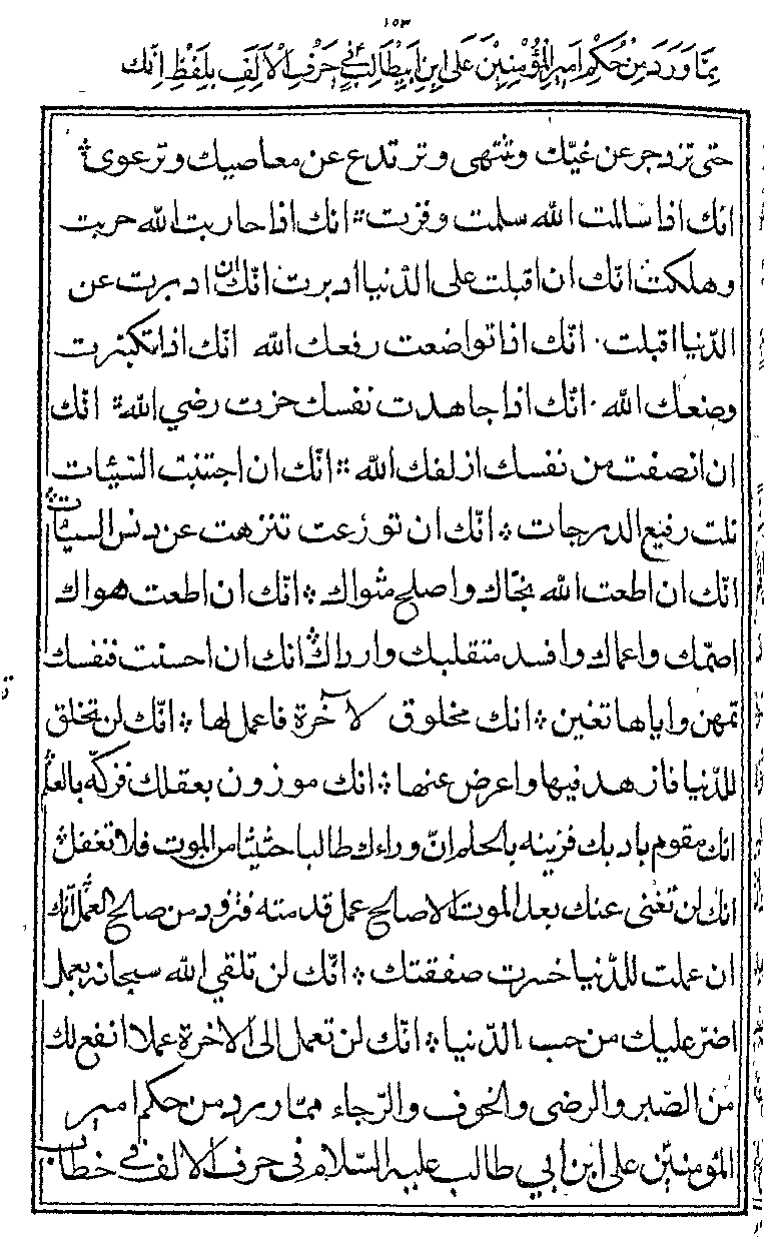 ١٥٣
مما ورد من حكم امير المؤمنين على ابن ابيطالب في حرف الالف بلفظ انك
حتى تزدجر عن غيّك وتنتهى وترتدع عن معاصيك وترعوى
انك اذا سالمت الله سلمت وفزت انك اذا حاربت الله حربت
وهلكت انّك ان اقبلت على الدّنيا ادبرت انّك ان ادبرت عن
الدّنيا اقبلت انّك اذا تواضعت رفعك الله انّك اذا تكبّرت
وضعك الله انّك اذا جاهدت نفسك حزت رضي الله انّك
ان انصفت من نفسك ازلفك الله انّك ان اجتنبت السّيّئات
نلت رفيع الدرجات انّك ان تورّعت تنزهت عن دنس السيئات
انّك ان اطعت الله نجّاك واصلح مثواك انّك ان اطعت هواك
اصمّك واعماك وافسد متقلبك وارداك انك ان احسنت فنفسك
تمهن واياها تغبن انك مخلوق لآخرة فاعمل لها انّك لن تخلق
للدّنيا فازهد فيها واعرض عنها انك موزون بعقلك فزكّه بالعلم
انك مقوم بادبك فزينه بالحلم انّ وراءك طالبا حثيثا من الموت فلا تغفل
انك لن تغنى عنك بعد الموت الا صالح عمل قدمته فتزود من صالح العمل انّك
ان عملت للدّنيا خسرت صفقتك انّك لن تلقي الله سبحانه بعمل
اضرّ عليك من حب الدّنيا انّك لن تعمل الى الاخرة عملا انفع لك
من الصّبر والرضى والخوف والرّجاء ممّا ورد من حكم امير
المؤمنيّن على ابن ابي طالب عليه السّلام فى حرف الالف في خطاب